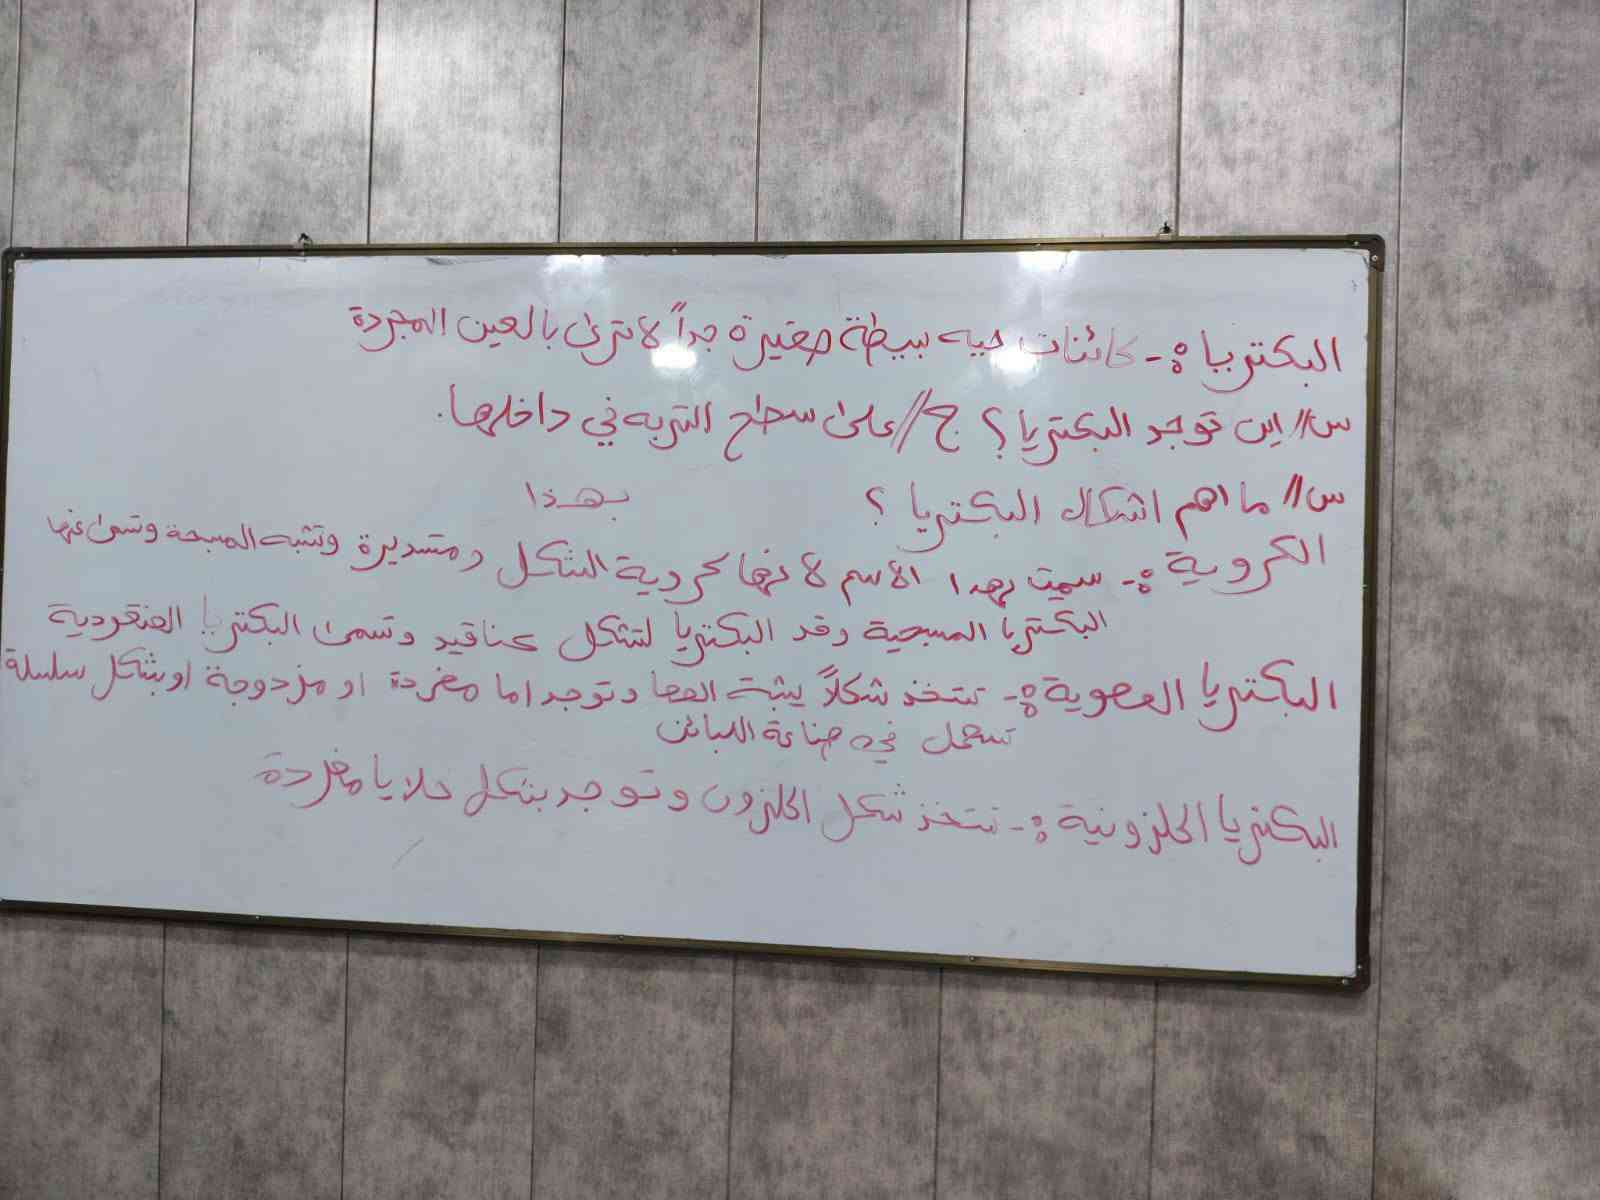 البكتريا :- كائنات حيه بسيطة صغيرة جداً لا ترى بالعين المجردة
س// اين توجد البكتريا؟ ج// على سطح التربه في داخلها.
س// ما اهم اشكال البكتريا ؟
بهذا
الكروية :- سميت بهذا الاسم لانها كروية الشكل ومتسديرة وتشبه المسبحة وتسمى
البكتريا المسبحية وقد البكتريا لتشكل عناقيد وتسمى البكتريا العنقودية
البكتريا العصوية :- تتخذ شكلاً يشبة العصا وتوجد اما مفردة او مزدوجة او بشكل سلسلة
تسعمل في صناعة اللبائن
البكتريا الحلزونية :- تتخذ شكل الحلزون وتوجد بشكل خلايا مفردة